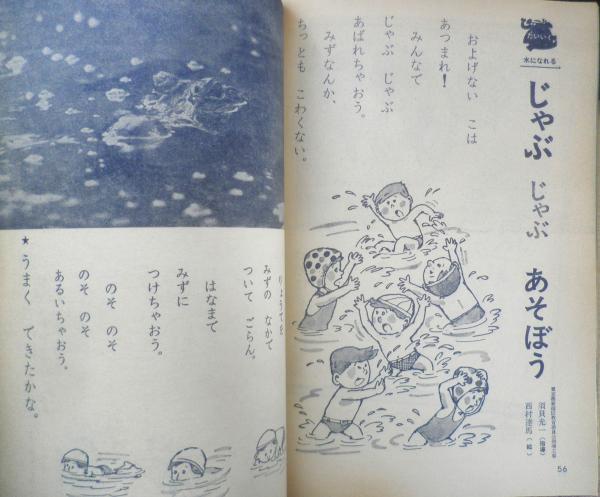 たいいく
水になれる
じゃぶ じゃぶ あそぼう
須貝光一（指導）
西村達馬（絵）
およげない こは
あつまれ!
みんなで
じゃぶ じゃぶ
あばれちゃおう。
みずなんか、
ちっとも こわくない。
56
りょうてを
みずの なかで
ついて ごらん。
はなまで
みずに
つけちゃおう。
のそ のそ
のそ のそ
あるいちゃおう。
★うまく できたかな。